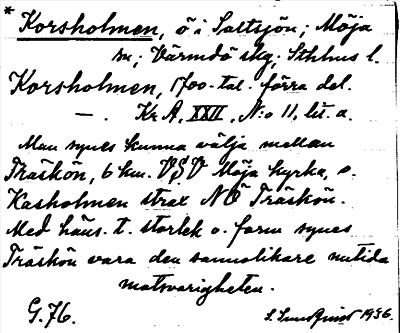 * Korsholmen, ö i Saltsjön; Möja
sn; Värmdö skg; Sthlms l.
Korsholmen, 1700-tal. förra del.
—. Kr A, XXII, N:o 11, lit. a.
Man synes kunna välja mellan
Träskön, 6 km. VSV Möja kyrka, o.
Kasholmen strax NÖ Träskön.
Med häns. t. storlek o. form synes
Träskön vara den sannolikare nutida
motsvarigheten.
G. 76.
1936.